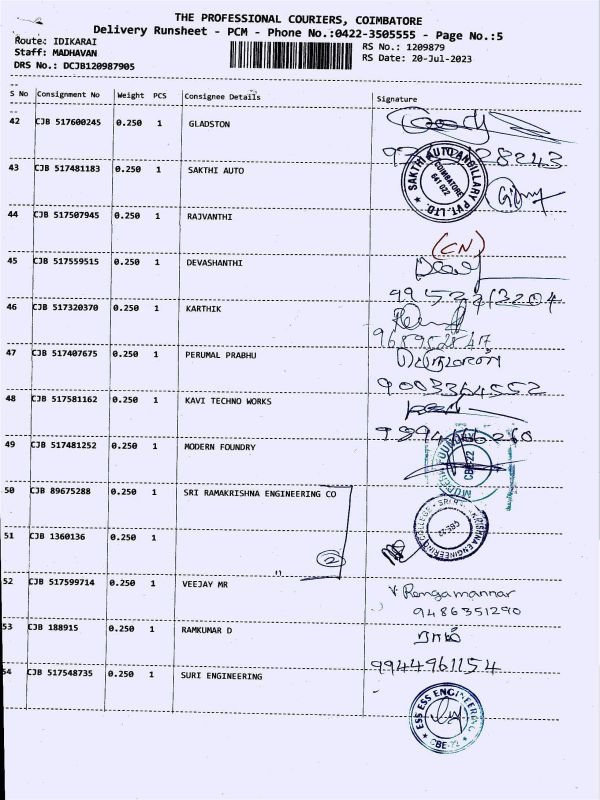 THE PROFESSIONAL COURIERS, COIMBATORE
Delivery Runsheet - PCM - Phone No.:0422-3505555 - Page No.:5
Route: IDIKARAI
Staff: MADHAVAN
DRS No.: DCJB120987905
RS No.: 1209879
RS Date: 20-Jul-2023
S No Consignment No Weight PCS Consignee Details Signature
42 CJB 517600245 0.250 1 GLADSTON
43 CJB 517481183 0.250 1 SAKTHI AUTO
SAKTHI AUTO ANCILLARY PVT. LTD.
COIMBATORE
641 022
44 CJB 517507945 0.250 1 RAJVANTHI
(CN)
45 CJB 517559515 0.250 1 DEVASHANTHI
46 CJB 517320370 0.250 1 KARTHIK
47 CJB 517407675 0.250 1 PERUMAL PRABHU
பெருமாள்
9003364552
48 CJB 517581162 0.250 1 KAVI TECHNO WORKS
49 CJB 517481252 0.250 1 MODERN FOUNDRY
CBE-22
50 CJB 89675288 0.250 1 SRI RAMAKRISHNA ENGINEERING CO
ENGINEERING COLLEGE
51 CJB 1360136 0.250 1
2
52 CJB 517599714 0.250 1 VEEJAY MR
V. Rengamannar
9486351290
53 CJB 188915 0.250 1 RAMKUMAR D
ராம்
9944961154
54 CJB 517548735 0.250 1 SURI ENGINEERING
ESS ESS ENGINEERING
CBE-22